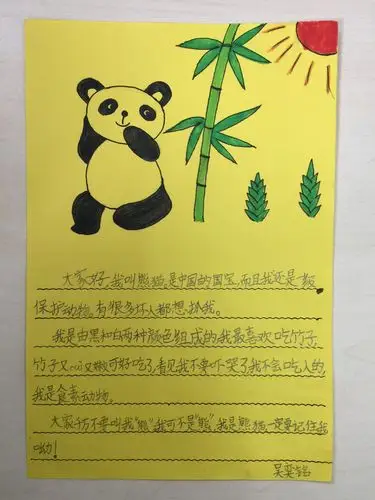 大家好,我叫熊猫,是中国的国宝,而且我还是一级
保护动物。有很多坏人都想抓我。
我是由黑和白两种颜色组成的我最喜欢吃竹子,
竹子又cui又嫩可好吃了,看见我不要吓哭了我不会吃人的,
我是食素动物。
大家千万不要叫我"熊"我可不是"熊",我是熊猫一定要记住我
呦!
吴奕铭